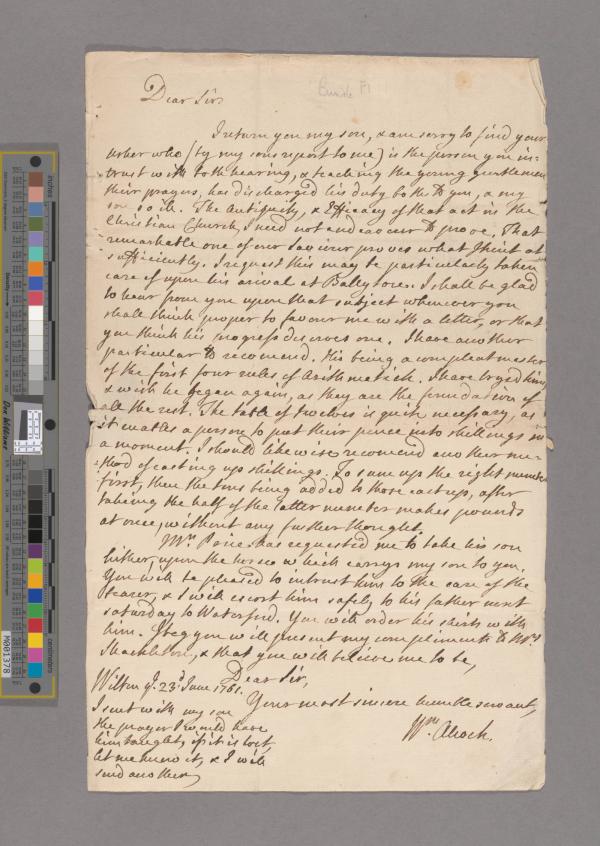 Burke F1
Dear Sir
I return you my son, & am sorry to find your
usher who (by my sons report to me) is the person you in-
trust with both hearing, & teaching the young gentlemen
their prayers, has discharged his duty both to you, & my
son so ill. The Antiquity, & Efficacy of that act in the
Christian Church, I need not endeavour to prove. That
remarkable one of our Saviour proves what I hint at
sufficiently. I request this may be particularly taken
care of upon his arival at Ballytore. I shall be glad
to hear from you upon that subject whenever you
shall think proper to favour me with a letter, or that
you think his progress deserves one. I have another
particular to recomend. His being a compleat master
of the first four rules of Arithmetick. I have tryed him,
& wish he began again, as they are the foundation of
all the rest. The table of twelves is quite necessary, as
it enables a person to put their pence into shillings in
a moment. I should likewise recomend another me-
thod of casting up shillings. To sum up the right number
first, then the tens being added to those cast up, after
taking the half of the latter number makes pounds
at once, without any further thought.
Mr. Price has requested me to take his son
hither, upon the horse which carrys my son to you.
You will be pleased to intrust him to the care of the
bearer, & I will escort him safely to his father next
saturday to Waterford. You will order his shirts with
him. I beg you will present my compliments to Mrs.
Shackleton, & that you will believe me to be,
Dear Sir,
Wilton ye. 23d. June 1761.
Your most sincere humble servant,
Wm. Alcock.
I sent with my son
the prayer I would have
him taught, if it is lost,
let me know it, & I will
send another,
M001378
Don Williams
centimeters